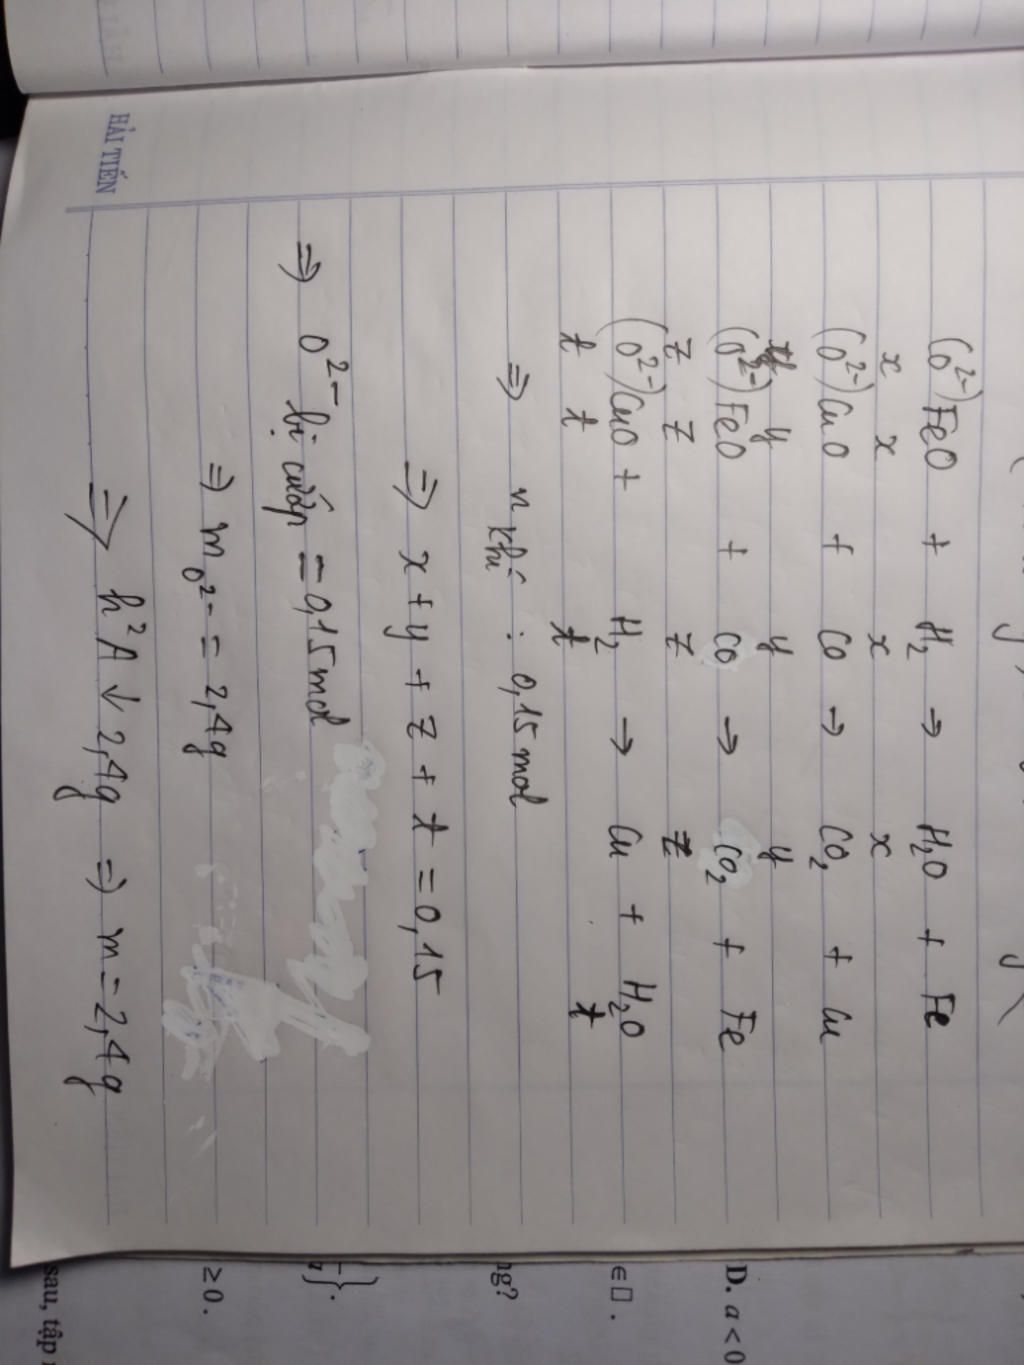 (O²⁻)FeO + H₂ → H₂O + Fe
x x x x
(O²⁻)CuO + CO → CO₂ + Cu
y y y
(O²⁻)FeO + CO → CO₂ + Fe
z z z z
(O²⁻)CuO + H₂ → Cu + H₂O
t t t t
⇒ n khí : 0,15 mol
⇒ x + y + z + t = 0,15
⇒ O²⁻ bị cướp = 0,15 mol
⇒ m O²⁻ = 2,4g
⇒ h²A ↓ 2,4g ⇒ m = 2,4g
HẢI TIẾN
D. a < 0
∈ □ .
≥ 0 .
sau, tập